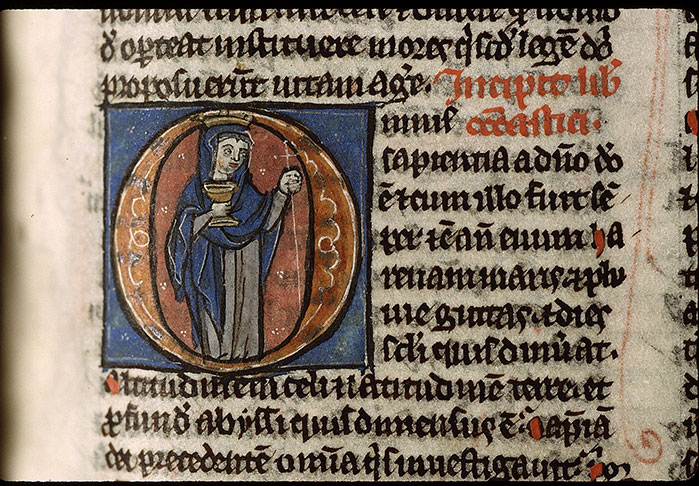 oporteat instituere mores legē
proposuerūt uitam agē. Incipit lib
Omnis ecc̄astici.
sapientia a dn̄o dō
ē et cum illo fuit sē
per et ē an̄ euum ha
renam maris et plu
uie guttas et dies
sc̄li quis dinūat.
Altitudinem celi et latitudinē terre et
profund abyssi quis dimensus ē sapīam
dei precedentē omnia investigauit